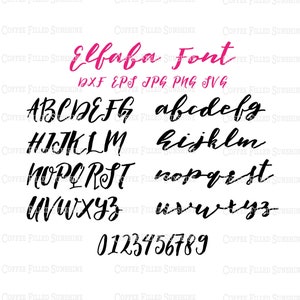 Elfaba Font
DXF EPS JPG PNG SVG
ABCDEFG abcdefg
HIJKLM hijklm
NOPQRST nopqrst
UVWXYZ uvwxyz
0123456789
COFFEE FILLED SUNSHINE